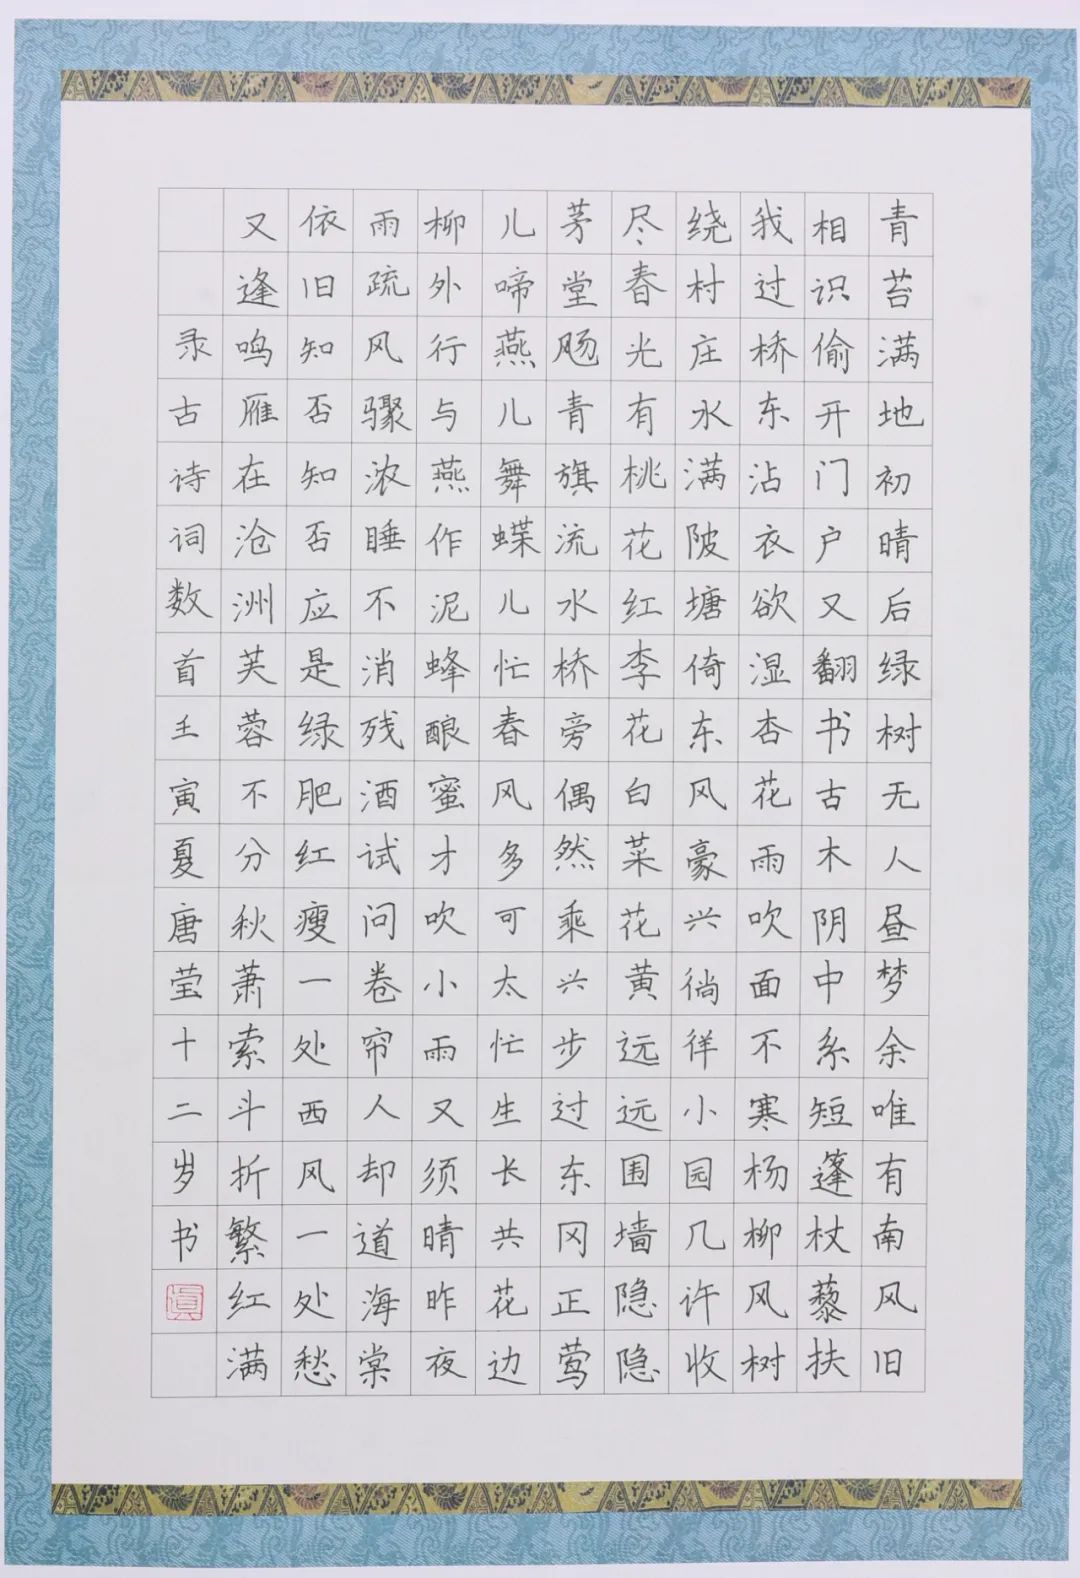 青苔满地初晴后绿树无人昼梦余唯有南风旧
相识偷开门户又翻书古木阴中系短蓬杖藜扶
我过桥东沾衣欲湿杏花雨吹面不寒杨柳风树
绕村庄水满陂塘倚东风豪兴徜徉小园几许收
尽春光有桃花红李花白菜花黄远远围墙隐隐
茅堂飏青旗流水桥旁偶然乘兴步过东冈正莺
儿啼燕儿舞蝶儿忙春风多可太忙生长共花边
柳外行与燕作泥蜂酿蜜才吹小雨又须晴昨夜
雨疏风骤浓睡不消残酒试问卷帘人却道海棠
依旧知否知否应是绿肥红瘦一处西风一处愁
又逢鸣雁在沧洲芙蓉不分秋萧索斗折繁红满
录古诗词数首壬寅夏唐莹十二岁书